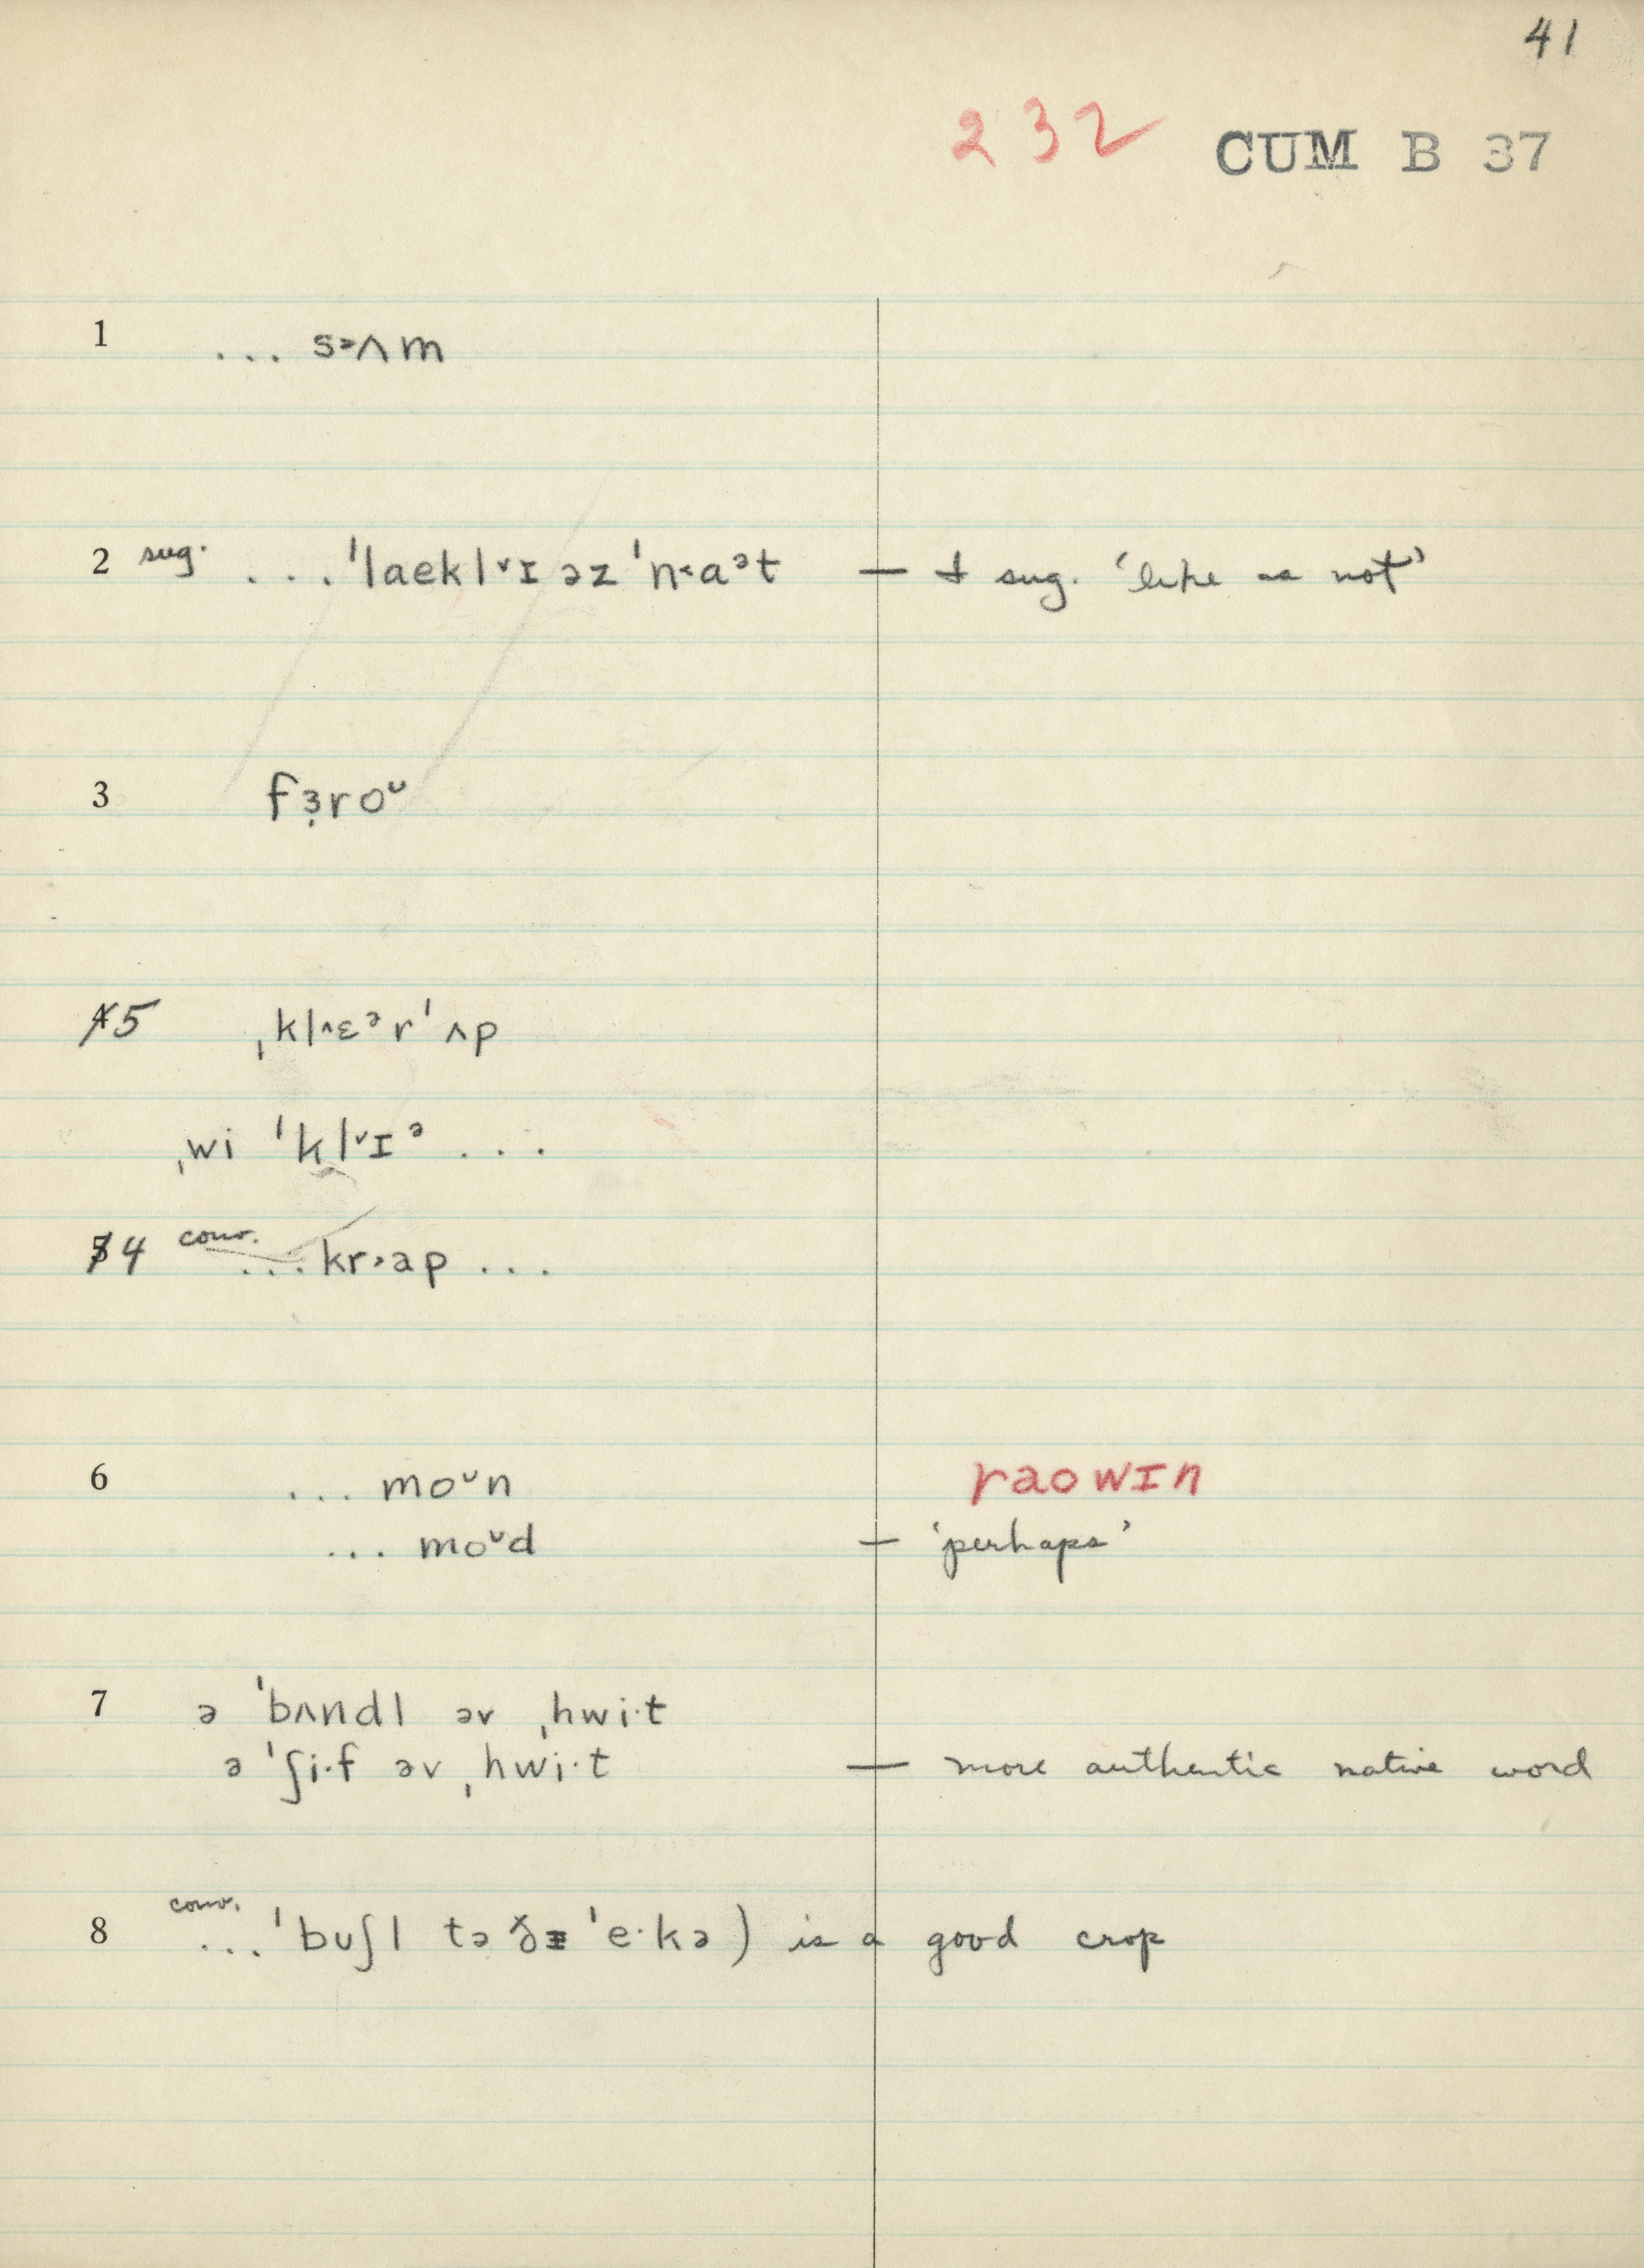 41
232 CUM B 37
1 ... s˃ʌm
2 sug. ... ˈlaekl˅ɪ əz ˈn˂aᵊt — I sug. ‘like as not’
3 fɜ̣roᵕ
4̸5 ˌkl˄ɛᵊrˈʌp
ˌwi ˈkl˅ɪᵊ ...
5̸4 conv. ... kr˃ap ...
6 ... moᵕn raowɪn
... moᵕd — ‘perhaps’
7 ə ˈbʌndl əv ˌhwi·t
ə ˈʃi·f əv ˌhwi·t — more authentic native word
8 conv. ... ˈbuʃl tə ðɪ ˈe·kə) is a good crop